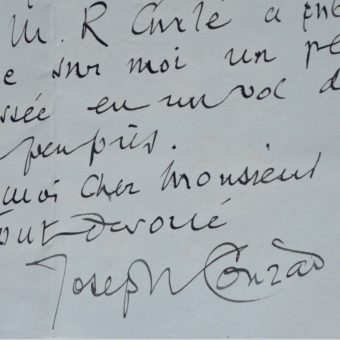 M. R Curle a pub
e sur moi un pe
ssée en un vol d
peuprès.
moi Cher Monsieur
out devoué
Joseph Conrad